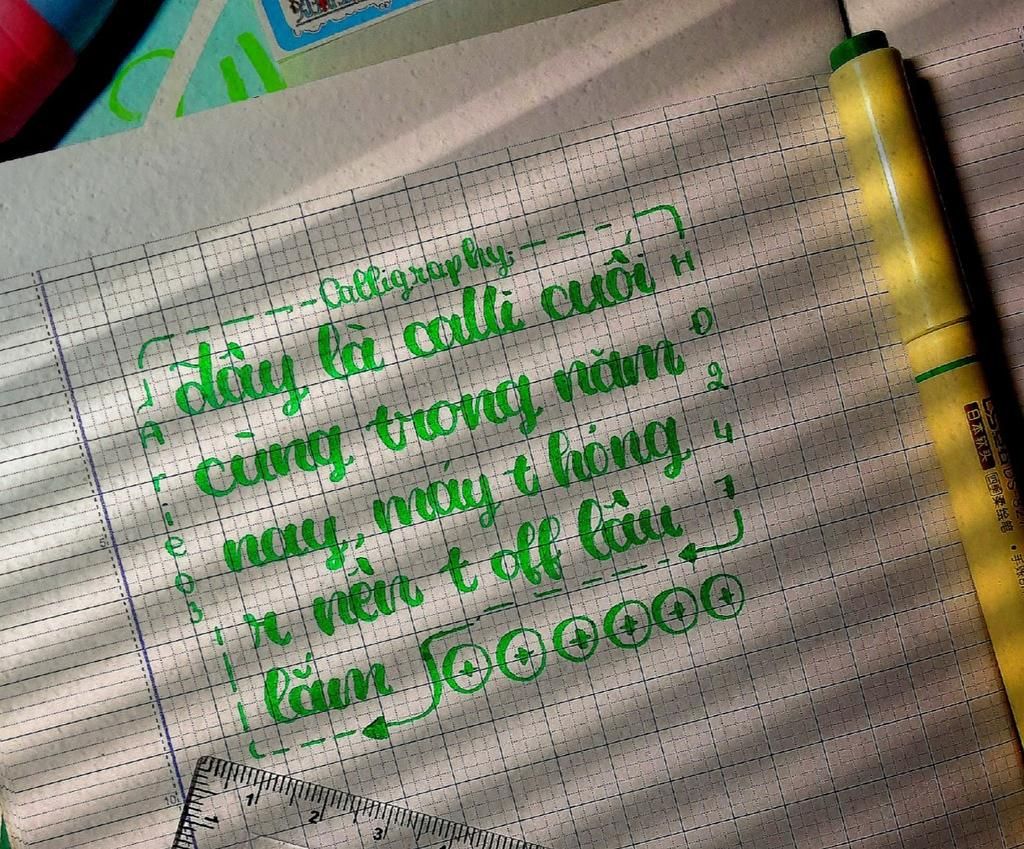 Calligraphy:
đây là calli cuối
cùng trong năm
nay, máy t hỏng
r nên t off lâu
lắm
A r i e 0 3
H D 2 4 7
日本软头
1 2 3
1
10